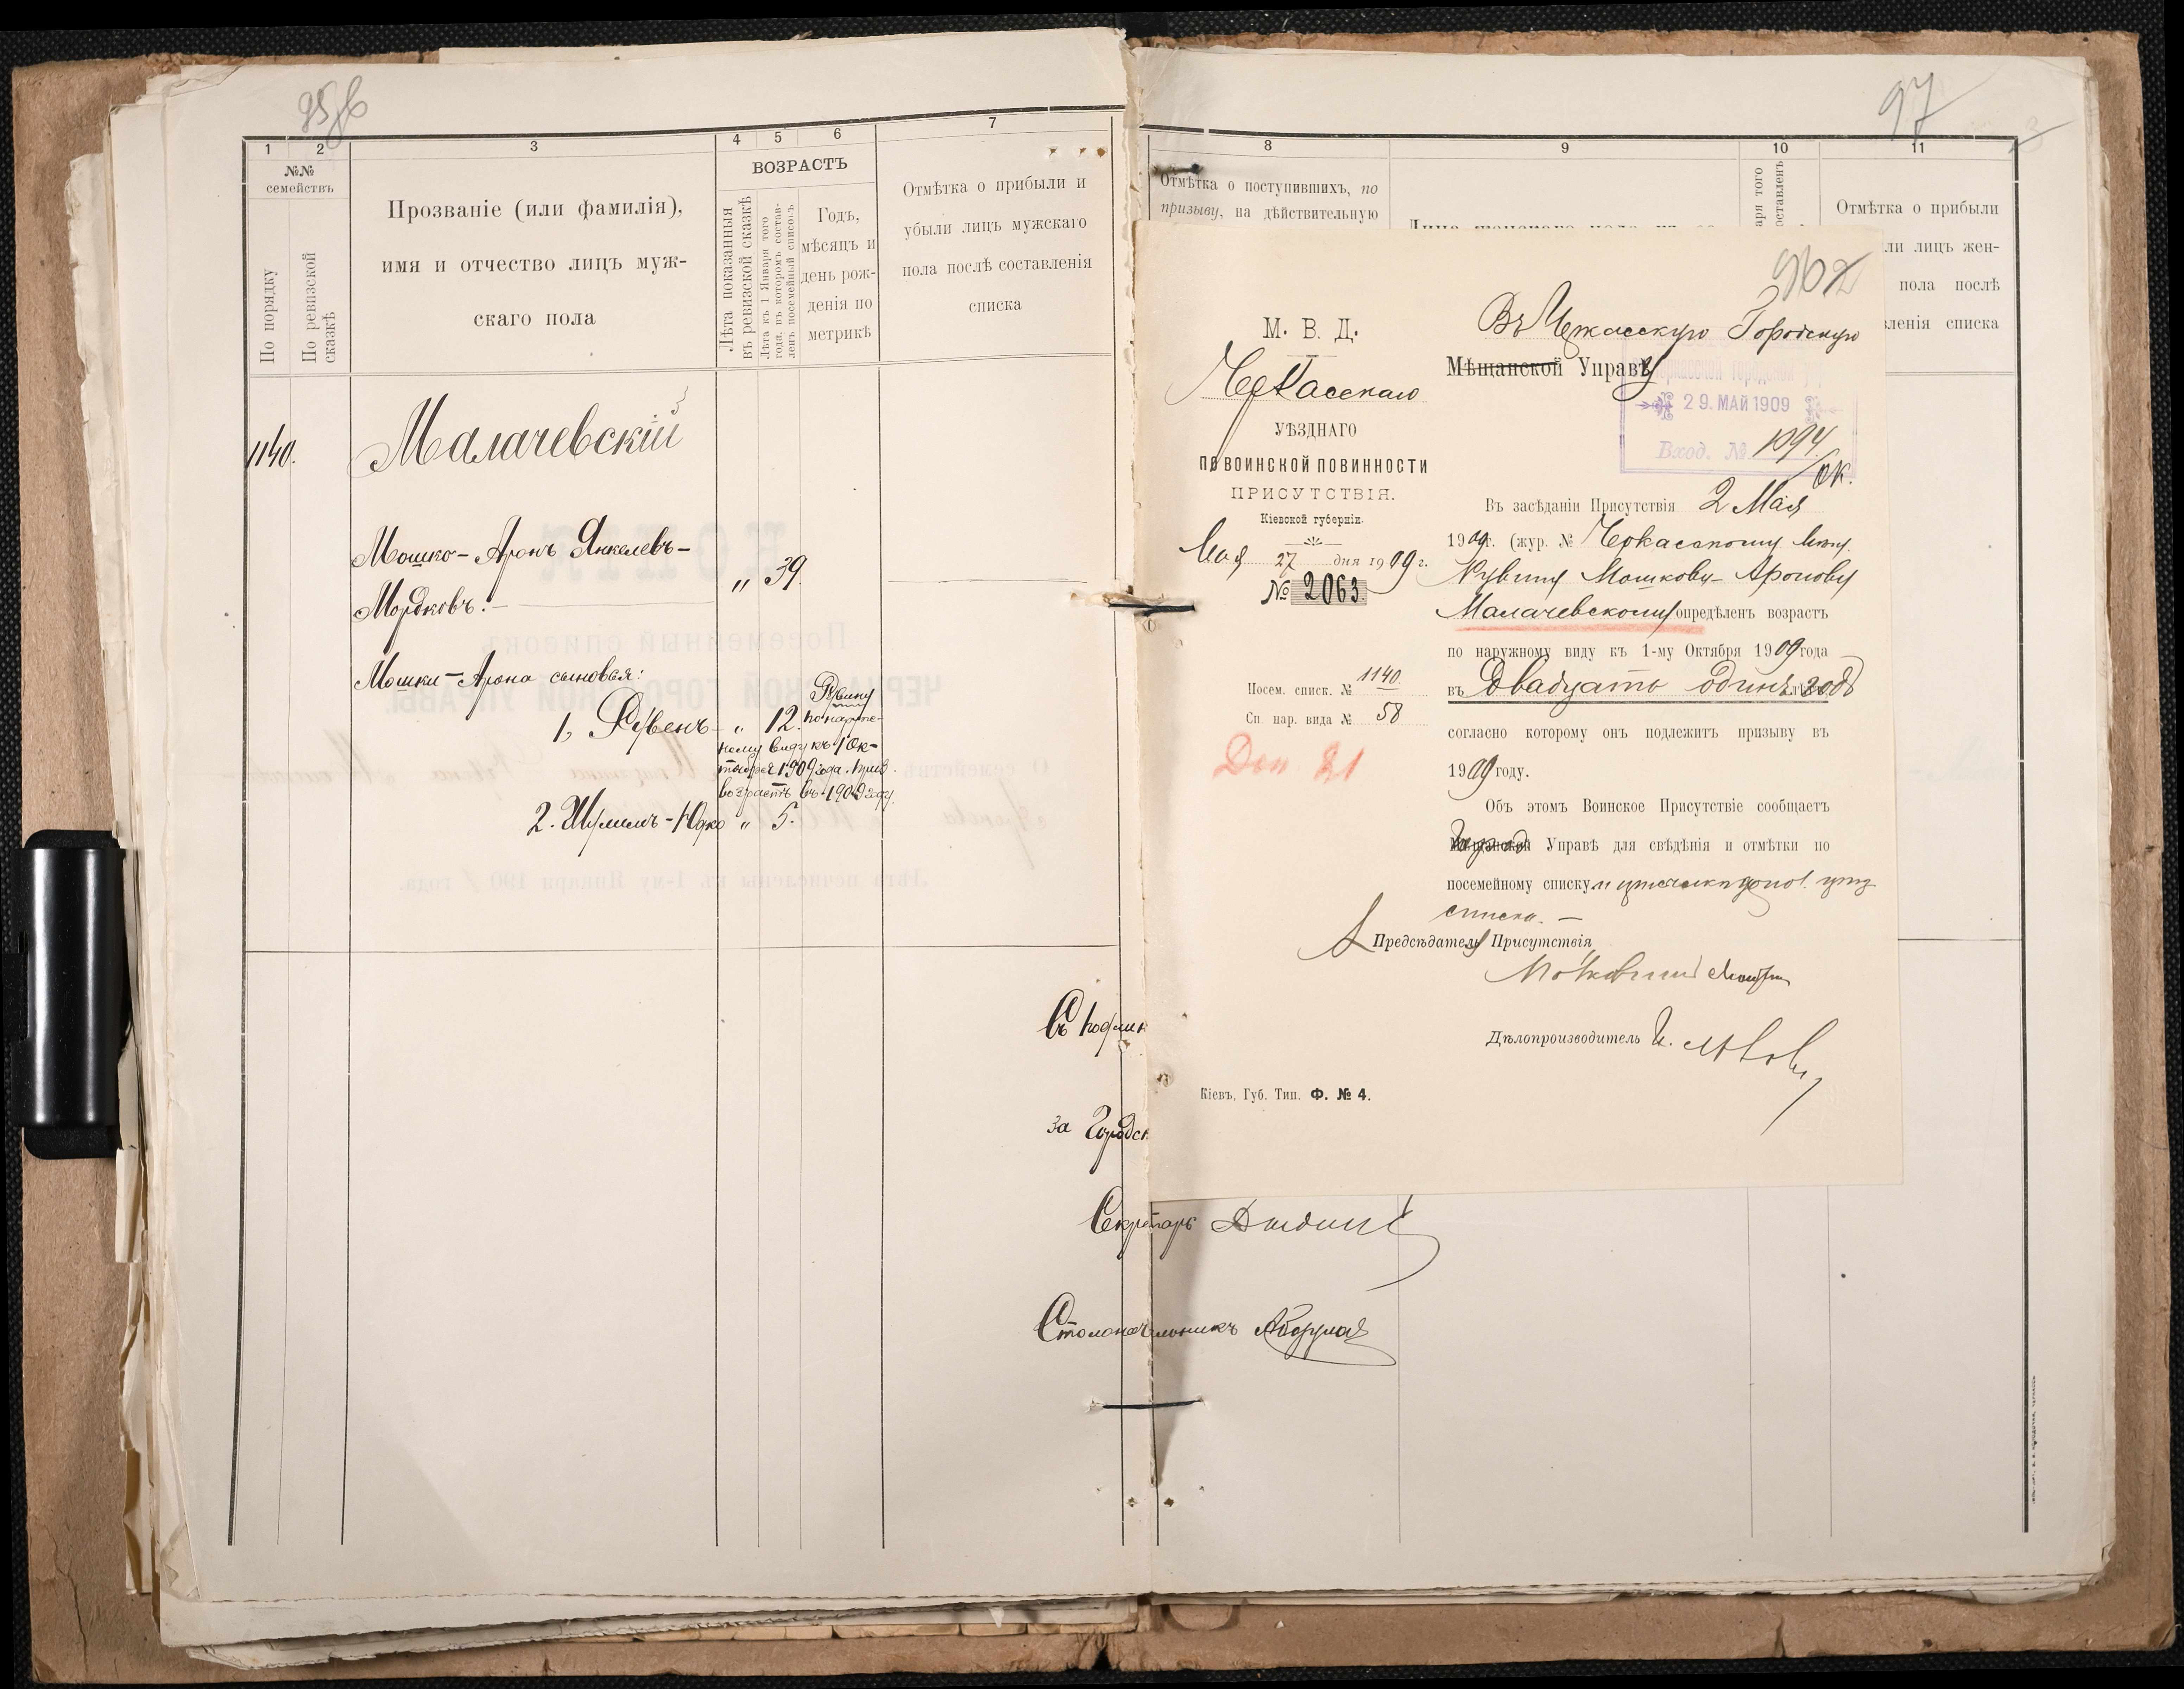 1
2
3
4
5
6
7
№№
семействъ
По порядку
По ревизской сказкѣ
Прозваніе (или фамилія),
имя и отчество лицъ муж-
скаго пола
ВОЗРАСТЪ
Лѣта показанныя
въ ревизской сказкѣ
Лѣта къ 1 Января того
года, въ которомъ состав-
ленъ посемейный списокъ
Годъ,
мѣсяцъ и
день рож-
денія по
метрикѣ
Отмѣтка о прибыли и
убыли лицъ мужскаго
пола послѣ составленія
списка
1140.
Малачевскій
Мошко-Аронъ Янкелевъ-
Мордковъ.
" 39.
Мошки-Арона сыновья:
1, Рувенъ " 12.
Рувину
по наруж-
ному виду къ 1 Ок-
тября 1909 года. приз.
возрастъ въ 1909 году.
2. Шулимъ-Юдко " 5.
Съ подлин
за Городск
Секретарь
Столоначальникъ
97
8
9
10
11
Отмѣтка о поступившихъ, по
призыву, на дѣйствительную
Отмѣтка о прибыли
ли лицъ жен-
пола послѣ
вленія списка
М. В. Д.
Черкасскаго
УѢЗДНАГО
ПО ВОИНСКОЙ ПОВИННОСТИ
ПРИСУТСТВІЯ.
Кіевской губерніи.
Мая 27 дня 1909 г.
№ 2063.
Посем. списк. № 1140
Сп. нар. вида № 58
Доп. 21
Въ Черкасскую Городскую
Мѣщанской Управу
29. МАЙ 1909
Вход. № 1094.
Въ засѣданіи Присутствія 2 Мая
1909 г. (жур. № Черкасскому мѣщ.
Рувину Мошкову-Аронову
Малачевскому опредѣленъ возрастъ
по наружному виду къ 1-му Октября 1909 года
въ Двадцать одинъ годъ
согласно которому онъ подлежитъ призыву въ
1909 году.
Объ этомъ Воинское Присутствіе сообщаетъ
Управѣ для свѣдѣнія и отмѣтки по
посемейному списку и
списка. —
Предсѣдатель Присутствія
Дѣлопроизводитель
Кіевъ, Губ. Тип. Ф. № 4.